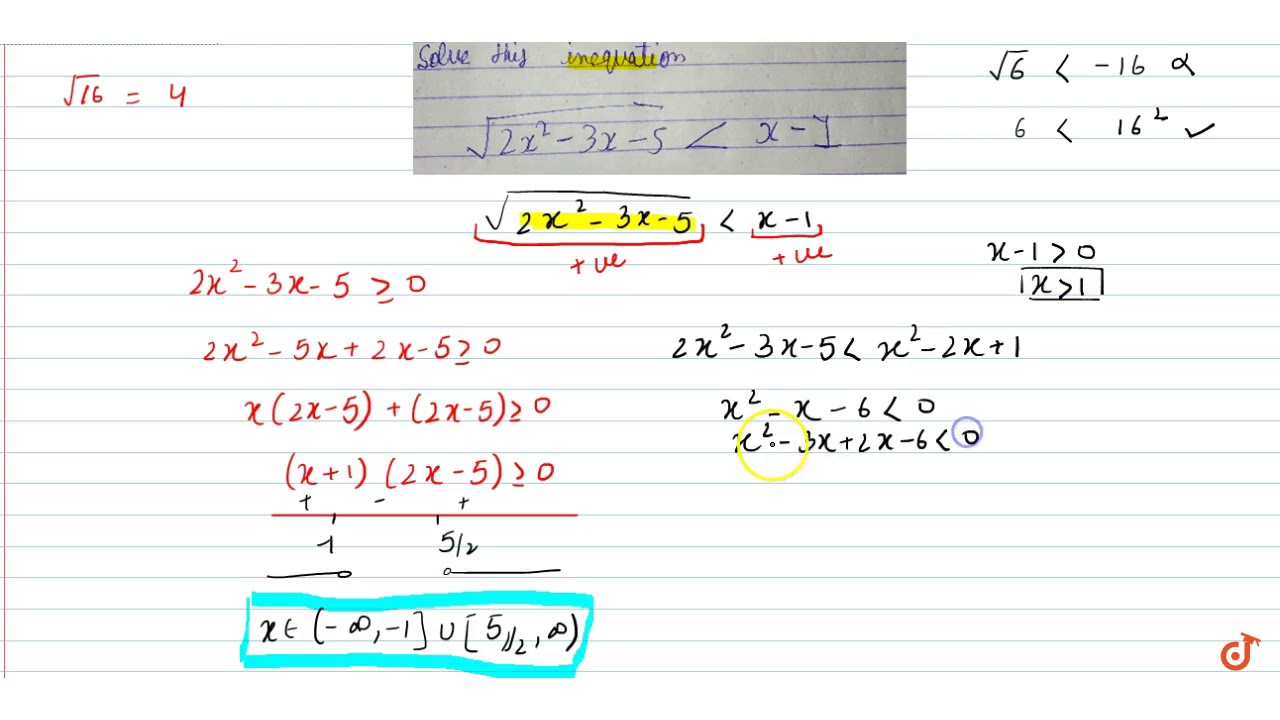 Solve this inequation
√16 = 4
√(2x² - 3x - 5) < x - 1
√6 < -16 α
6 < 16² ✓
√(2x² - 3x - 5) < x - 1
+ve +ve
x - 1 > 0
x > 1
2x² - 3x - 5 ≥ 0
2x² - 5x + 2x - 5 ≥ 0
x(2x - 5) + (2x - 5) ≥ 0
(x + 1) (2x - 5) ≥ 0
+ - +
-1 5/2
x ∈ (-∞, -1] ∪ [5/2, ∞)
2x² - 3x - 5 < x² - 2x + 1
x² - x - 6 < 0
x² - 3x + 2x - 6 < 0